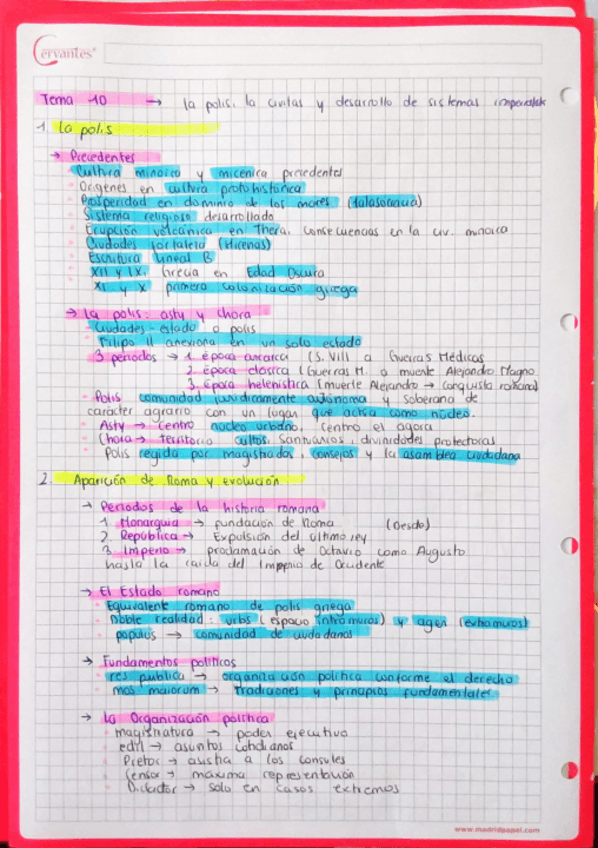 Cervantes
Tema 10 → la polis, la civitas y desarrollo de sistemas imperiales
1. la polis
→ Precedentes
Cultura minoica y micénica precedentes
Orígenes en cultura protohistórica
Prosperidad en dominio de los mares (talasocracia)
Sistema religioso desarrollado
Erupción volcánica en Thera, consecuencias en la civ. minoica
Ciudades fortaleza (Micenas)
Escritura lineal B
XII y IX, Grecia en Edad Oscura
XI y X primera colonización griega
→ la polis: asty y chora
Ciudades-estado o polis
Filipo II anexiona en un solo estado
3 periodos → 1. época arcaica (S. VIII a Guerras Médicas
2. época clásica (Guerras M. a muerte Alejandro Magno
3. época helenística (muerte Alejandro → conquista romana)
Polis comunidad jurídicamente autónoma y soberana de
carácter agrario con un lugar que actúa como núcleo.
Asty → centro núcleo urbano, centro el agora
Chora → territorio cultos, santuarios, divinidades protectoras
Polis regida por magistrados, consejos y la asamblea ciudadana
2. Aparición de Roma y evolución
→ Periodos de la historia romana
1. Monarquía → fundación de Roma (Desde)
2. República → Expulsión del último rey
3. Imperio → proclamación de Octavio como Augusto
hasta la caída del Imperio de Occidente
→ El Estado romano
Equivalente romano de polis griega
Doble realidad: urbs (espacio intramuros) y ager (extramuros)
populus → comunidad de ciudadanos
→ Fundamentos políticos
res publica → organización política conforme el derecho
mos maiorum → tradiciones y principios fundamentales
→ la Organización política
magistratura → poder ejecutivo
edil → asuntos cotidianos
Pretor → asistía a los consules
Censor → máxima representación
Dictador → solo en casos extremos
www.madridpapel.com